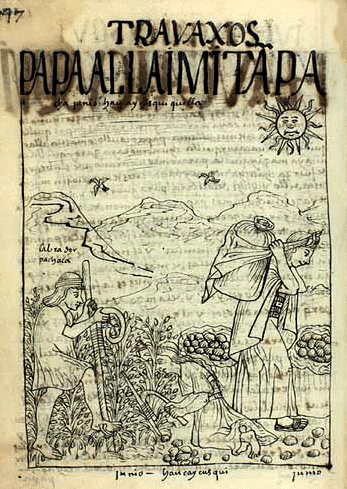 TRAVAXOS
PAPAALLAIMITAPA
junio haucaycusqui quilla
labrador
pachaca
junio – haucaycusqui
junio